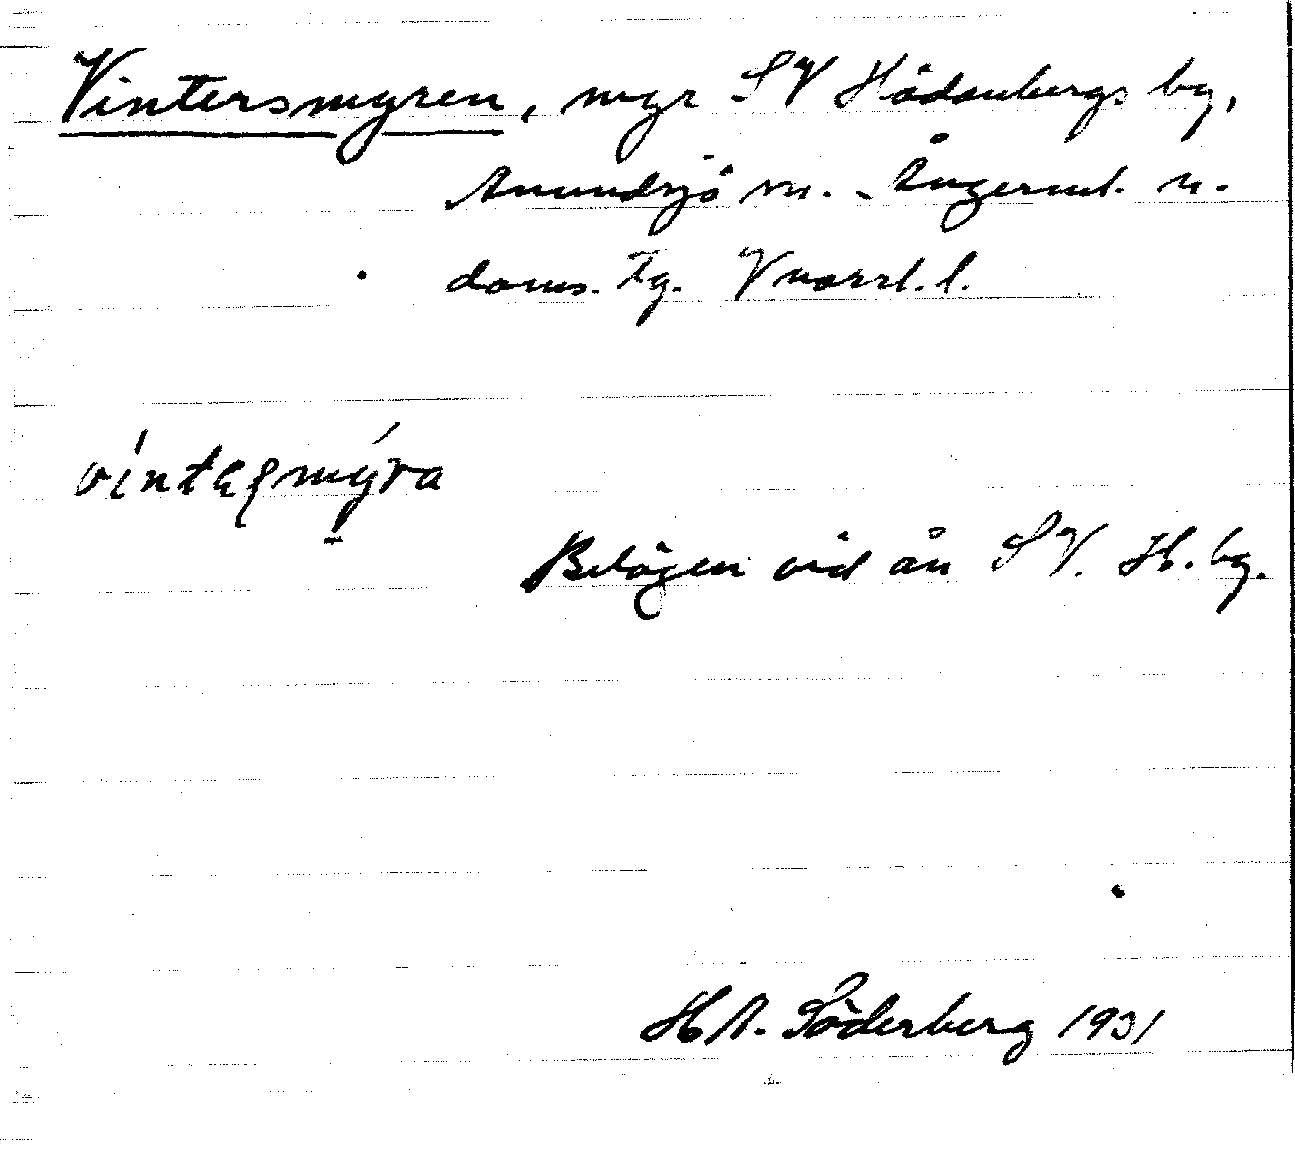 Vintersmyren, myr SV Hädanbergs by,
Anundsjö sn. Ångerml. n.
doms. Tg. Vnorrl. l.
Belägen vid ån SV. H. by.
HA. Söderberg 1931